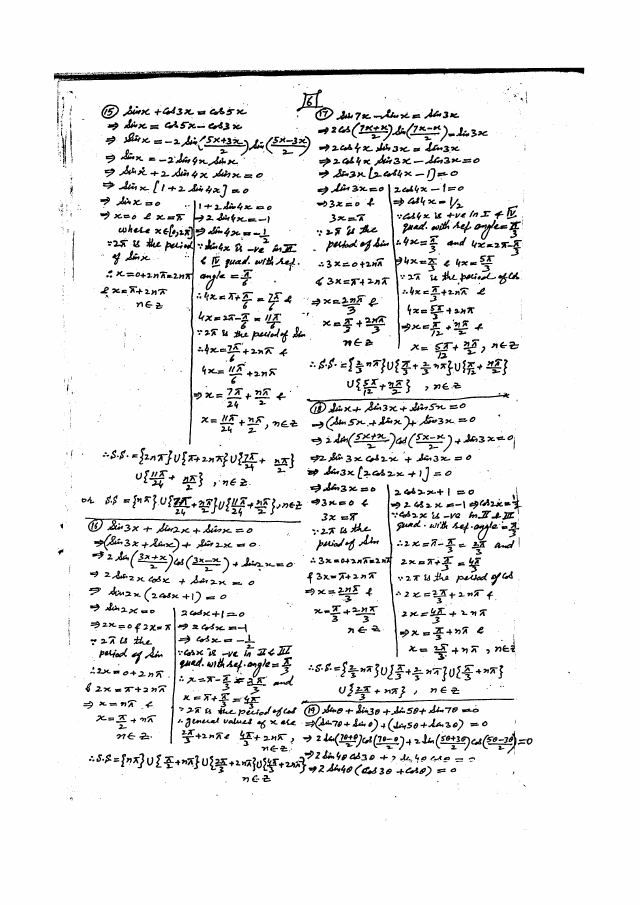 6
(15) Sinx + Cos3x = Cos5x
⇒ Sinx = Cos5x - Cos3x
⇒ Sinx = -2 Sin((5x+3x)/2) Sin((5x-3x)/2)
⇒ Sinx = -2 Sin4x Sinx
⇒ Sinx + 2 Sin4x Sinx = 0
⇒ Sinx [1 + 2 Sin4x] = 0
⇒ Sinx = 0
⇒ x = 0 & x = π
where x∈[0,2π]
∵ 2π is the period
of Sinx
∴ x = 0+2nπ = 2nπ
& x = π+2nπ
n∈Z
1 + 2 Sin4x = 0
⇒ 2 Sin4x = -1
⇒ Sin4x = -1/2
∵ Sin4x is -ve in III
& IV quad. with Ref.
angle = π/6
∴ 4x = π+π/6 = 7π/6 &
4x = 2π-π/6 = 11π/6
∵ 2π is the period of Sin
∴ 4x = 7π/6 + 2nπ &
4x = 11π/6 + 2nπ
⇒ x = 7π/24 + nπ/2 &
x = 11π/24 + nπ/2, n∈Z
∴ S.S. = {2nπ} U {π+2nπ} U {7π/24 + nπ/2}
U {11π/24 + nπ/2}, n∈Z
or S.S = {nπ} U {7π/24 + nπ/2} U {11π/24 + nπ/2}, n∈Z
(16) Sin3x + Sin2x + Sinx = 0
⇒ (Sin3x + Sinx) + Sin2x = 0
⇒ 2 Sin((3x+x)/2) Cos((3x-x)/2) + Sin2x = 0
⇒ 2 Sin2x Cosx + Sin2x = 0
⇒ Sin2x (2Cosx + 1) = 0
⇒ Sin2x = 0
⇒ 2x = 0 & 2x = π
∵ 2π is the
period of Sin
∴ 2x = 0+2nπ
& 2x = π+2nπ
⇒ x = nπ &
x = π/2 + nπ
n∈Z
2Cosx + 1 = 0
⇒ 2Cosx = -1
⇒ Cosx = -1/2
∵ Cosx is -ve in II & III
quad. with Ref. angle = π/3
∴ x = π-π/3 = 2π/3 and
x = π+π/3 = 4π/3
∵ 2π is the period of Cos
∴ general values of x are
2π/3 + 2nπ & 4π/3 + 2nπ,
n∈Z.
∴ S.S = {nπ} U {π/2 + nπ} U {2π/3 + 2nπ} U {4π/3 + 2nπ}
n∈Z
(17) Sin7x - Sinx = Sin3x
⇒ 2Cos((7x+x)/2) Sin((7x-x)/2) = Sin3x
⇒ 2Cos4x Sin3x = Sin3x
⇒ 2Cos4x Sin3x - Sin3x = 0
⇒ Sin3x [2Cos4x - 1] = 0
⇒ Sin3x = 0
⇒ 3x = 0 &
3x = π
∵ 2π is the
period of Sin
∴ 3x = 0+2nπ
& 3x = π+2nπ
⇒ x = 2nπ/3 &
x = π/3 + 2nπ/3
n∈Z
2Cos4x - 1 = 0
⇒ Cos4x = 1/2
∵ Cos4x is +ve in I & IV
quad. with ref angle = π/3
∴ 4x = π/3 and 4x = 2π-π/3
⇒ 4x = π/3 & 4x = 5π/3
∵ 2π is the period of Cos
∴ 4x = π/3 + 2nπ &
4x = 5π/3 + 2nπ
⇒ x = π/12 + nπ/2 &
x = 5π/12 + nπ/2, n∈Z
∴ S.S. = {2/3 nπ} U {π/3 + 2/3 nπ} U {π/12 + nπ/2}
U {5π/12 + nπ/2}, n∈Z
(18) Sinx + Sin3x + Sin5x = 0
⇒ (Sin5x + Sinx) + Sin3x = 0
⇒ 2 Sin((5x+x)/2) Cos((5x-x)/2) + Sin3x = 0
⇒ 2 Sin3x Cos2x + Sin3x = 0
⇒ Sin3x [2Cos2x + 1] = 0
⇒ Sin3x = 0
⇒ 3x = 0 &
3x = π
∵ 2π is the
period of Sin
∴ 3x = 0+2nπ = 2nπ
& 3x = π+2nπ
⇒ x = 2nπ/3 &
x = π/3 + 2nπ/3
n∈Z
2Cos2x + 1 = 0
⇒ 2Cos2x = -1 ⇒ Cos2x =
∵ Cos2x is -ve in II & III
quad. with ref. angle = π/3
∴ 2x = π-π/3 = 2π/3 and
2x = π+π/3 = 4π/3
∵ 2π is the period of Cos
∴ 2x = 2π/3 + 2nπ &
2x = 4π/3 + 2nπ
⇒ x = π/3 + nπ &
x = 2π/3 + nπ, n∈Z
∴ S.S. = {2/3 nπ} U {π/3 + 2/3 nπ} U {π/3 + nπ}
U {2π/3 + nπ}, n∈Z
(19) Sinθ + Sin3θ + Sin5θ + Sin7θ = 0
⇒ (Sin7θ + Sinθ) + (Sin5θ + Sin3θ) = 0
⇒ 2 Sin((7θ+θ)/2) Cos((7θ-θ)/2) + 2 Sin((5θ+3θ)/2) Cos((5θ-3θ)/2) = 0
⇒ 2 Sin4θ Cos3θ + 2 Sin4θ Cosθ = 0
⇒ 2 Sin4θ (Cos3θ + Cosθ) = 0